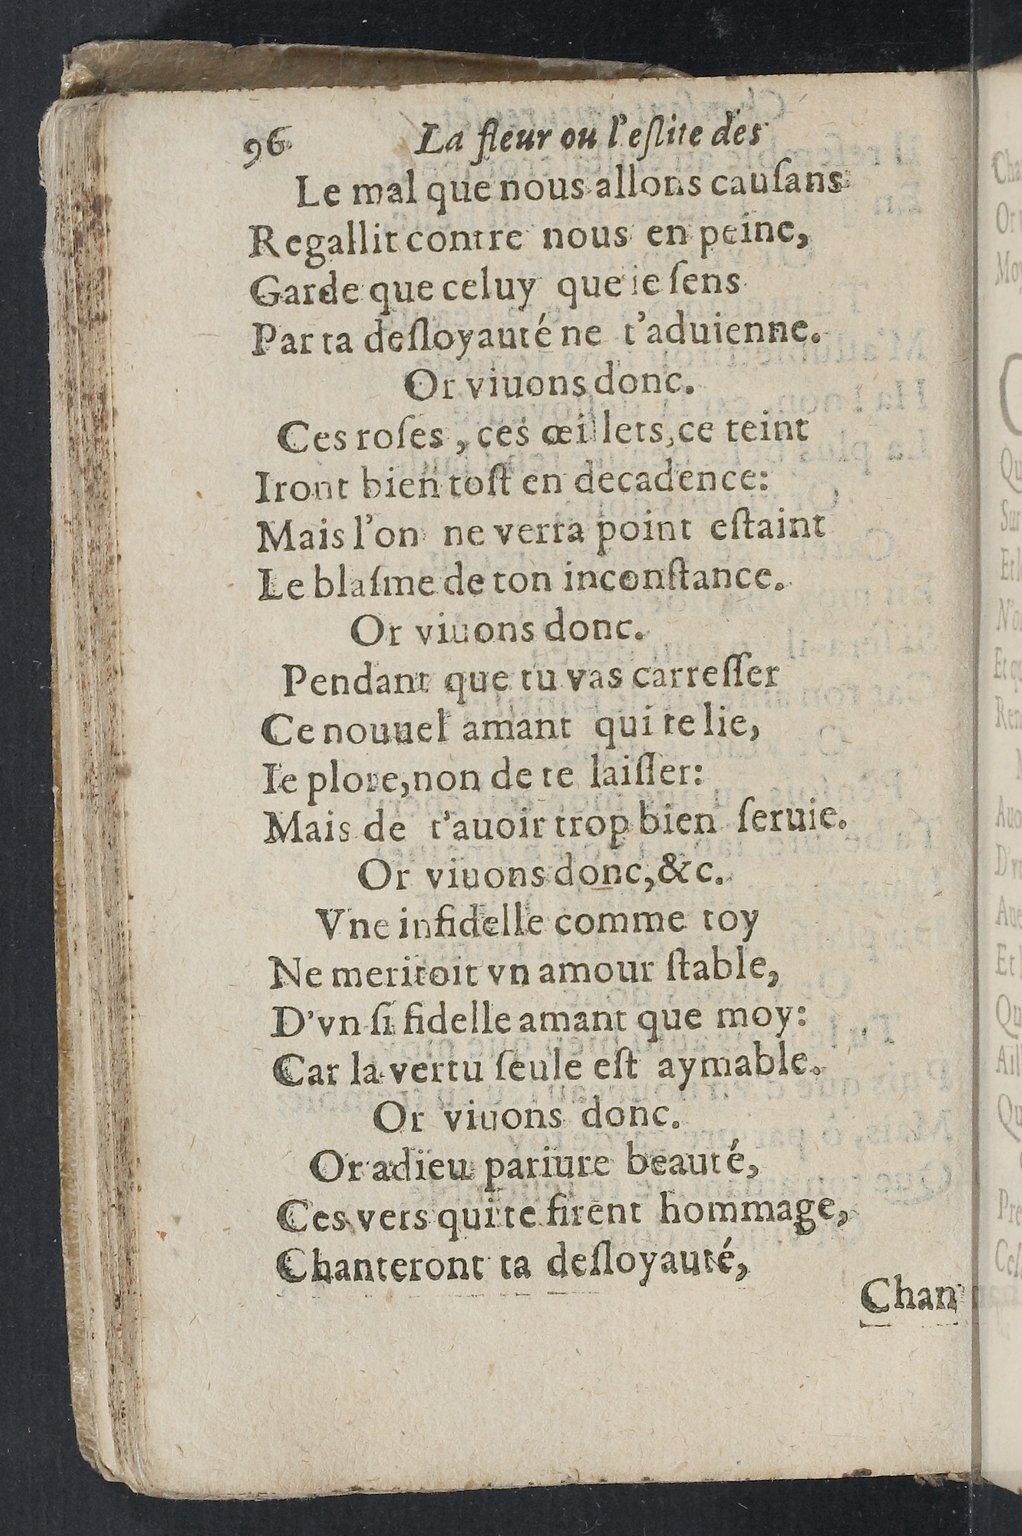 96 La fleur ou l'eſlite des
Le mal que nous allons cauſans
Regallit contre nous en peine,
Garde que celuy que ie ſens
Par ta deſloyauté ne t'aduienne.
Or viuons donc.
Ces roſes, ces œillets, ce teint
Iront bien toſt en decadence:
Mais l'on ne verra point eſtaint
Le blaſme de ton inconſtance.
Or viuons donc.
Pendant que tu vas carreſſer
Ce nouuel amant qui te lie,
Ie plore, non de te laiſſer:
Mais de t'auoir trop bien ſeruie.
Or viuons donc, &c.
Vne infidelle comme toy
Ne meritoit vn amour ſtable,
D'vn ſi fidelle amant que moy:
Car la vertu ſeule eſt aymable.
Or viuons donc.
Or adieu pariure beauté,
Ces vers qui te firent hommage,
Chanteront ta deſloyauté,
Chan